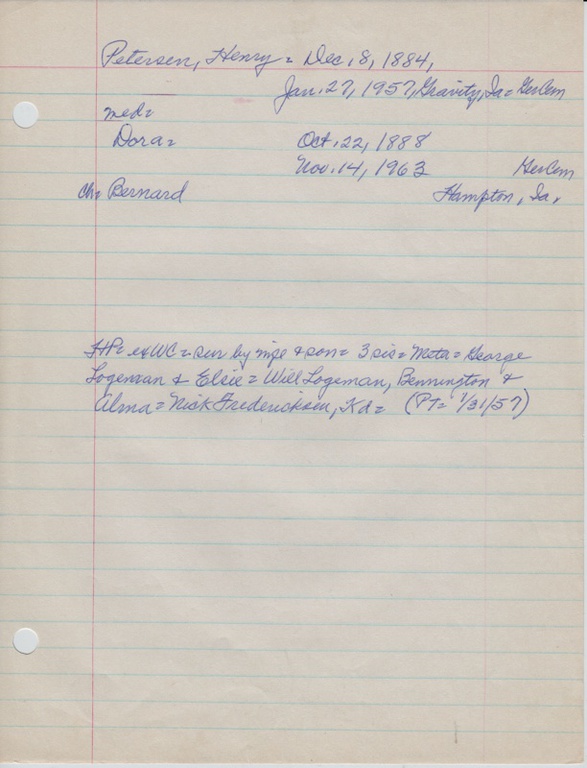 Petersen, Henry = Dec. 8, 1884,
Jan. 27, 1957, Gravity, Ia = GerCem
med=
Dora= Oct. 22, 1888
Nov. 14, 1963 GerCem
Ch. Bernard Hampton, Ia.
HP= exWC = sur by wife & son = 3 sis = Meta = George
Logeman & Elsie = Will Logeman, Bennington &
Alma = Nick Fredericksen, Ka = (PT= 1/31/57)